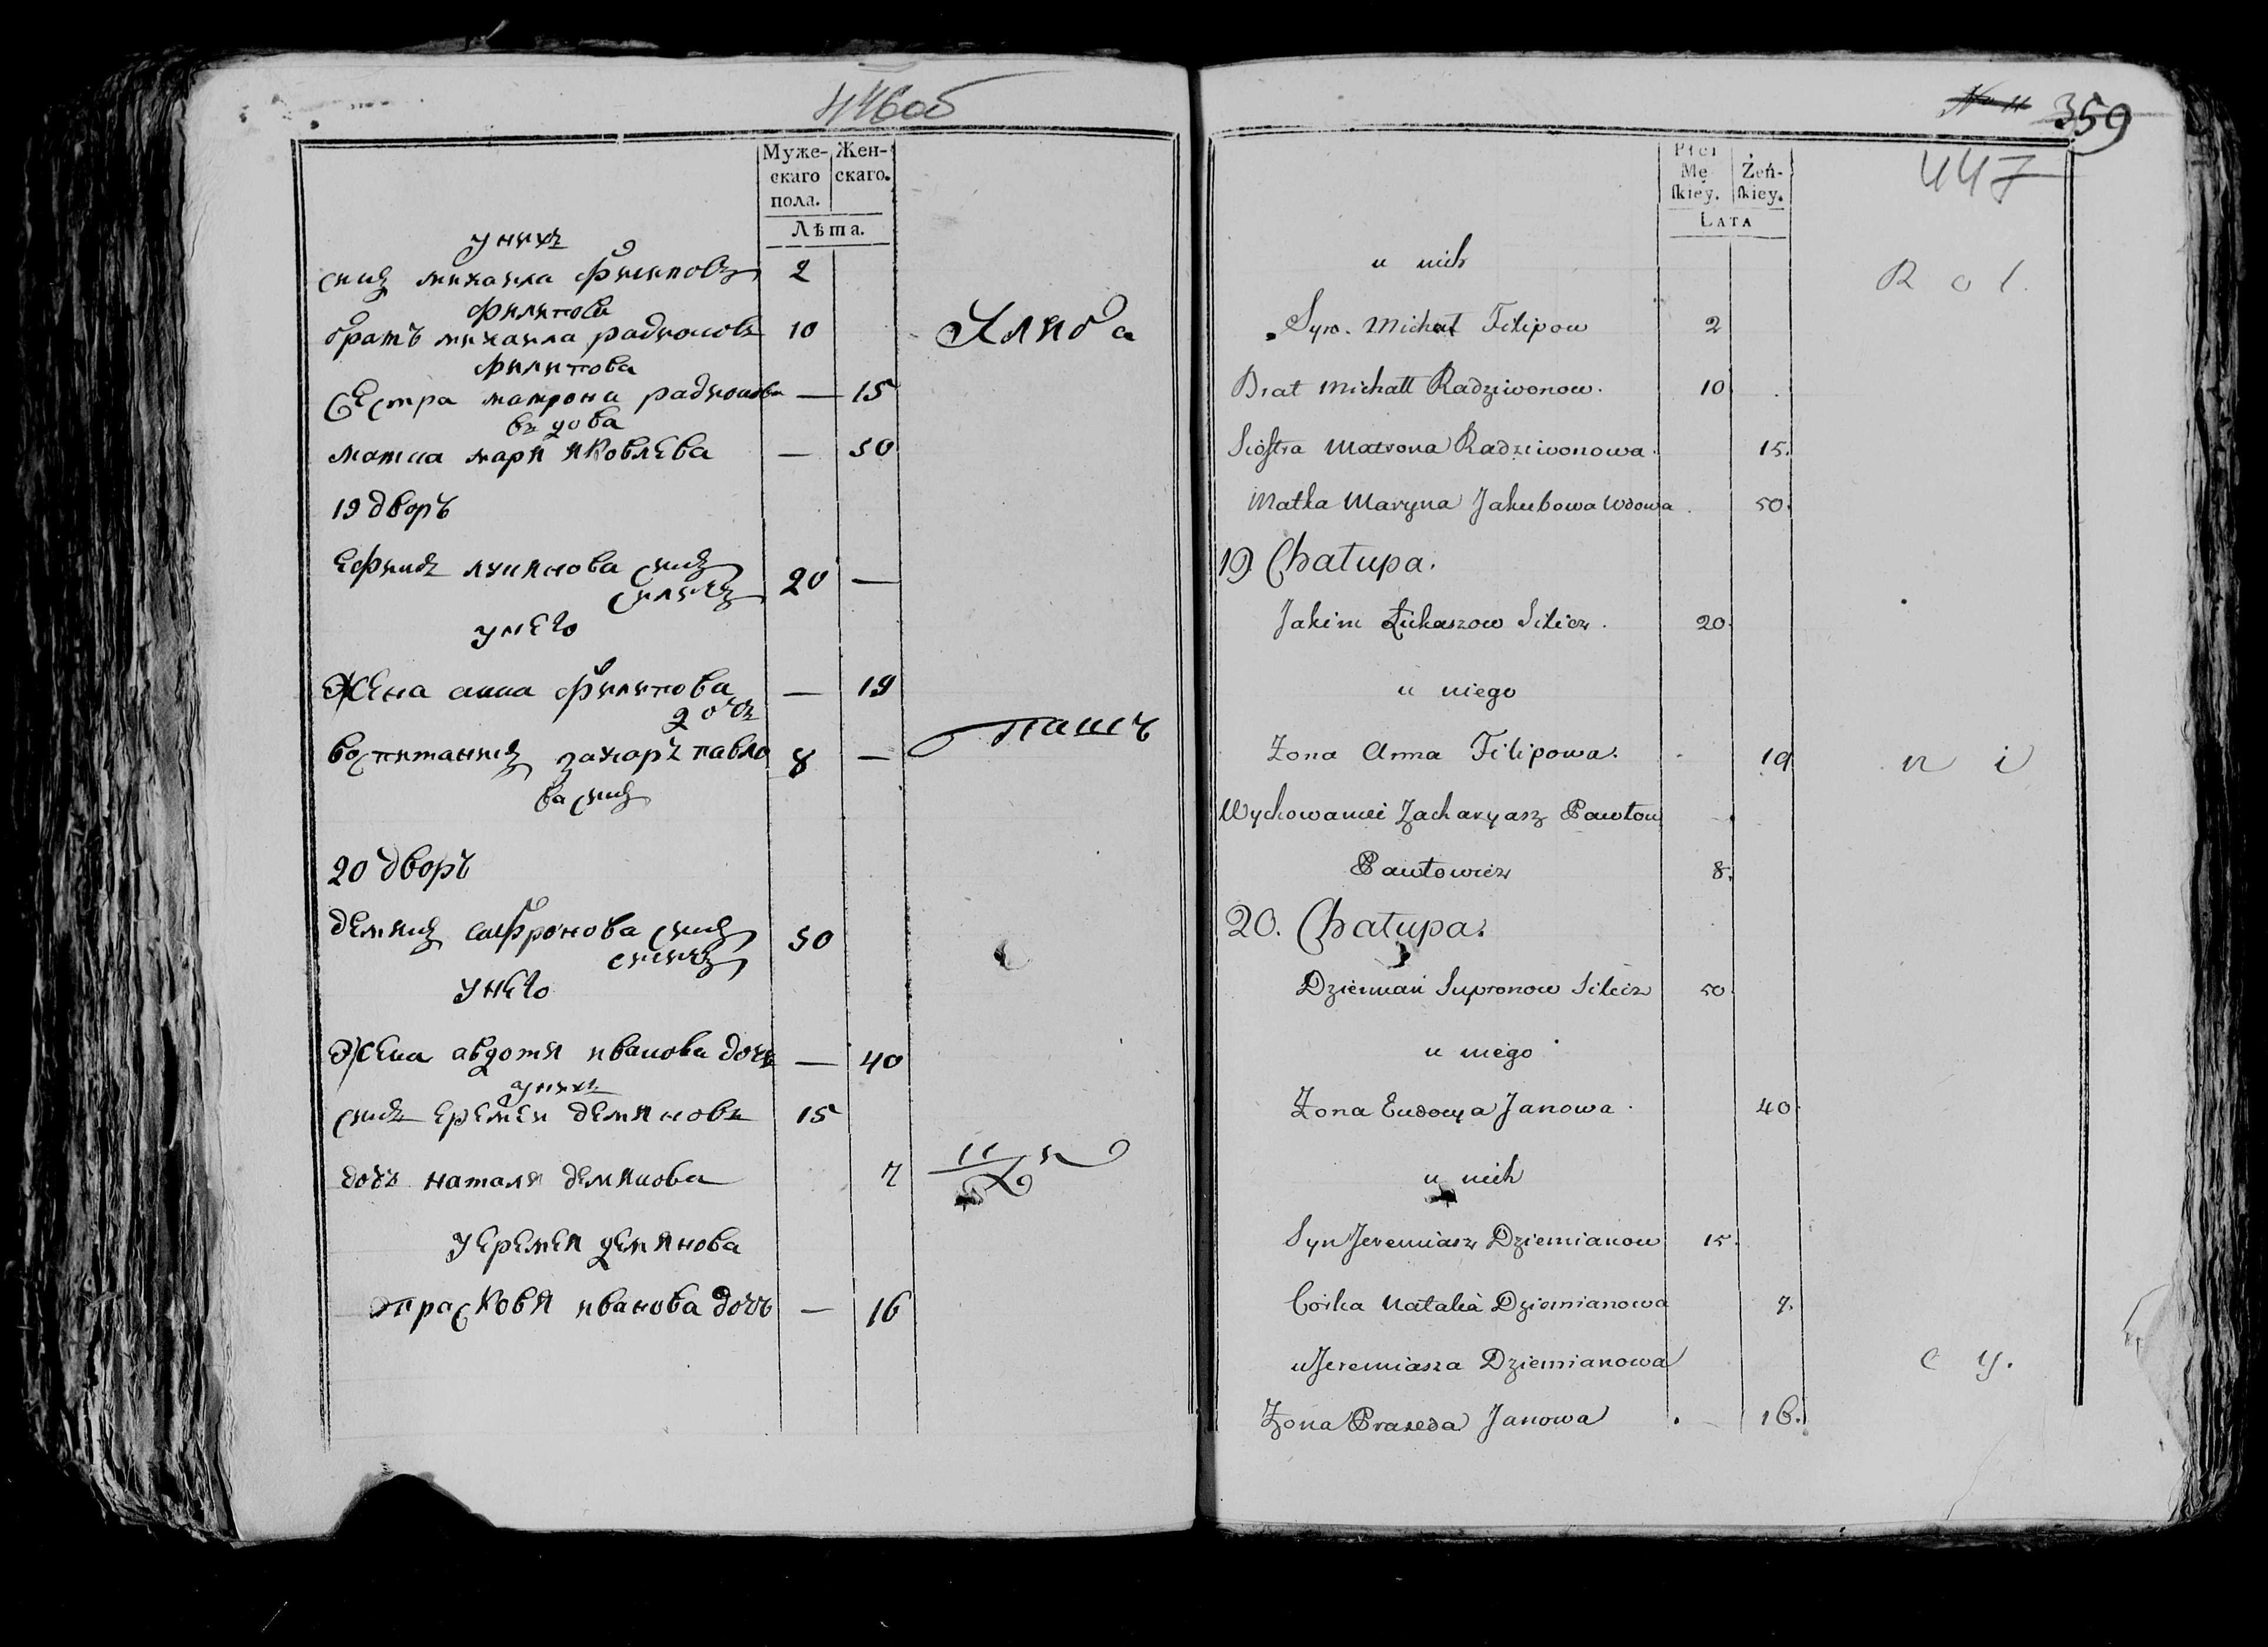 446об
Муже- Жен-
скаго скаго.
пола.
Лѣта.
у нихъ
сынъ михаила филиповъ 2
филипова
братъ михаила радионовъ 10
Хлиба
филипова
сестра матрона радионова — 15
вдова
матка мария яковлева — 50
19 дворъ
ефимъ лукянова сынъ 20 —
силичъ
у него
жена анна филипова — 19
дочь
воспитаникъ захаръ павло 8 —
пашъ
ва сынъ
20 дворъ
демянъ сафронова сынъ 50
силичъ
у него
жена авдотя иванова дочь — 40
у нихъ
сынъ еремеи демяновъ 15
дочь наталя демянова 7
у еремея демянова
прасковя иванова дочь — 16
359
447
Płci
Mę Żeń-
skiey. skiey.
LATA
u nich
Rol
Syn. Michał Filipow 2
Brat Michałł Radziwonow. 10
Siostra Matrona Radziwonowa. 15.
Matka Maryna Jakubowa Wdowa. 50.
19 Chałupa.
Jakim Łukaszow Silicz. 20.
u niego
Żona Anna Filipowa. 19
n i
Wychowaniec Zacharyasz Pawłow
Pawłowicz 8.
20. Chałupa.
Dziemian Supronow Silicz 50.
u niego
Żona Eudocya Janowa. 40.
u nich
Syn Jeremiasz Dziemianow 15.
Corka Natalia Dziemianowa 7.
u Jeremiasza Dziemianowa
c y.
Żona Praxeda Janowa. — 16.